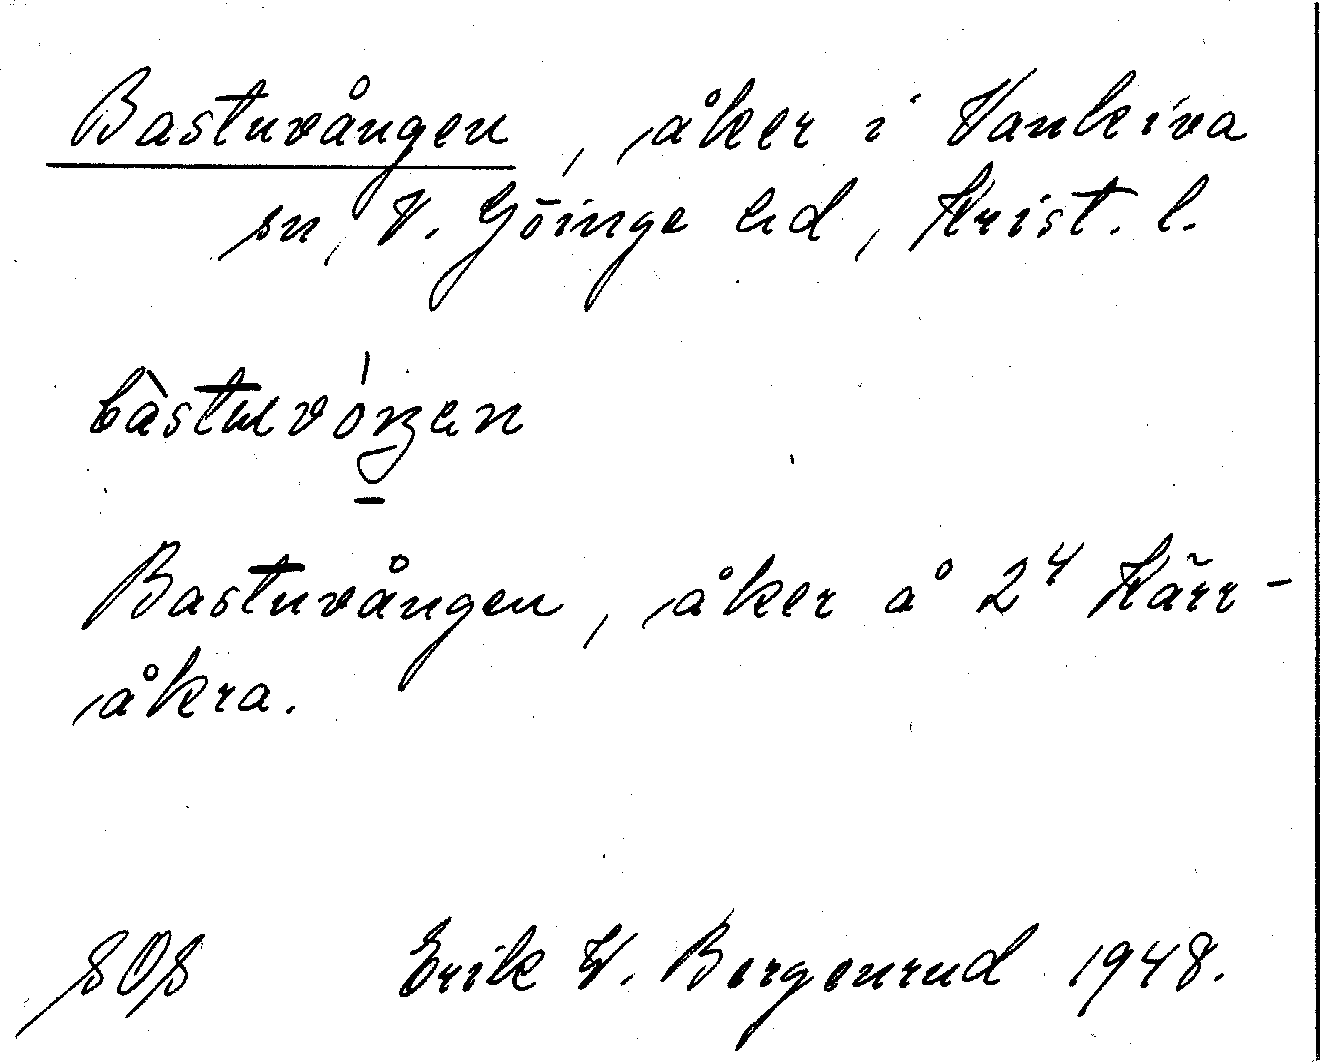 Bastuvången, åker i Vankiva
sn, V. Göinge hd, Krist. l.
Bastuvången, åker å 2⁴ Kärr-
åkra.
SOS Erik W. Bergenrud 1948.